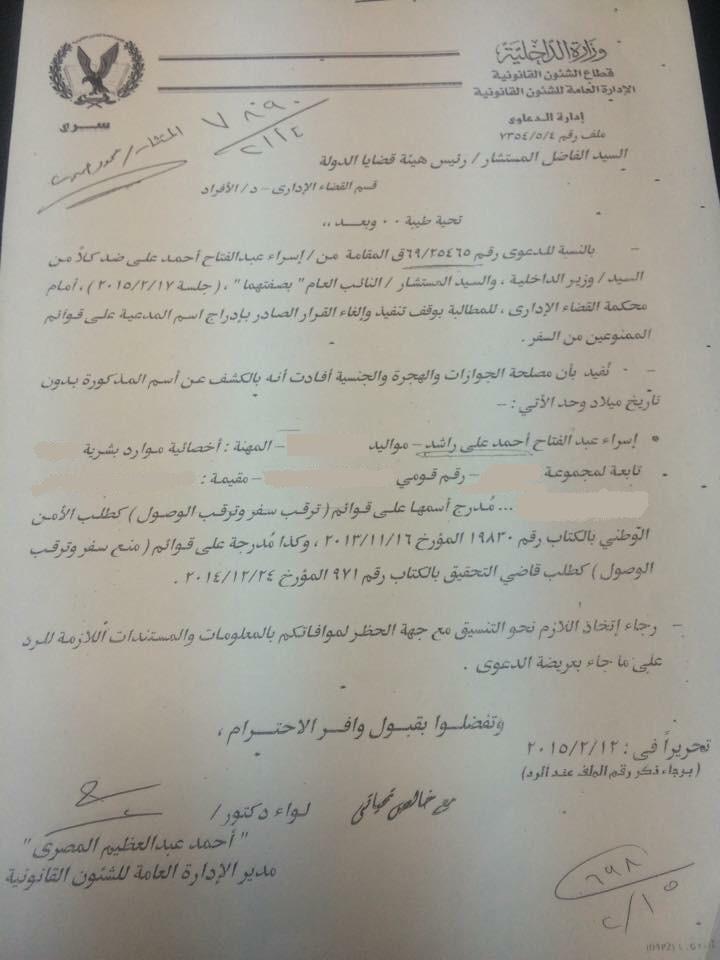 وزارة الداخلية
قطاع الشئون القانونية
الإدارة العامة للشئون القانونية
إدارة الدعاوى
ملف رقم ٧٣٥٤/٥/٤
سرى
٧٨٩٠
٢/١٤
السيد الفاضل المستشار / رئيس هيئة قضايا الدولة
قسم القضاء الإدارى – د/ الأفراد
تحية طيبة ٠٠ وبعد ،،
– بالنسبة للدعوى رقم ٦٩/٢٥٤٦٥ق المقامة من / إسراء عبدالفتاح أحمد على ضد كلاً من
السيد / وزير الداخلية ، والسيد المستشار / النائب العام " بصفتهما " ، ( جلسة ٢٠١٥/٢/١٧ ) ، أمام
محكمة القضاء الإدارى ، للمطالبة بوقف تنفيذ وإلغاء القرار الصادر بإدراج اسم المدعية على قوائم
الممنوعين من السفر .
– نُفيد بأن مصلحة الجوازات والهجرة والجنسية أفادت أنه بالكشف عن أسم المذكورة بدون
تاريخ ميلاد وجد الأتي : –
• إسراء عبد الفتاح أحمد على راشد – مواليد – المهنة : أخصائية موارد بشرية
تابعة لمجموعة – رقم قومي – مقيمة :
... مُدرج أسمها على قوائم ( ترقب سفر وترقب الوصول ) كطلب الأمن
الوطني بالكتاب رقم ١٩٨٣٠ المؤرخ ٢٠١٣/١١/١٦ ، وكذا مُدرجة على قوائم ( منع سفر وترقب
الوصول ) كطلب قاضي التحقيق بالكتاب رقم ٩٧١ المؤرخ ٢٠١٤/١٢/٢٤ .
– رجاء إتخاذ اللازم نحو التنسيق مع جهة الحظر لموافاتكم بالمعلومات والمستندات اللازمة للرد
على ما جاء بعريضة الدعوى .
وتفضلوا بقبول وافر الاحترام ،
تحريراً فى : ٢٠١٥/٢/١٢
( برجاء ذكر رقم الملف عند الرد )
مع خالص تحياتى
لواء دكتور /
" أحمد عبدالعظيم المصرى "
مدير الإدارة العامة للشئون القانونية
٦٩٨
٢/١٥